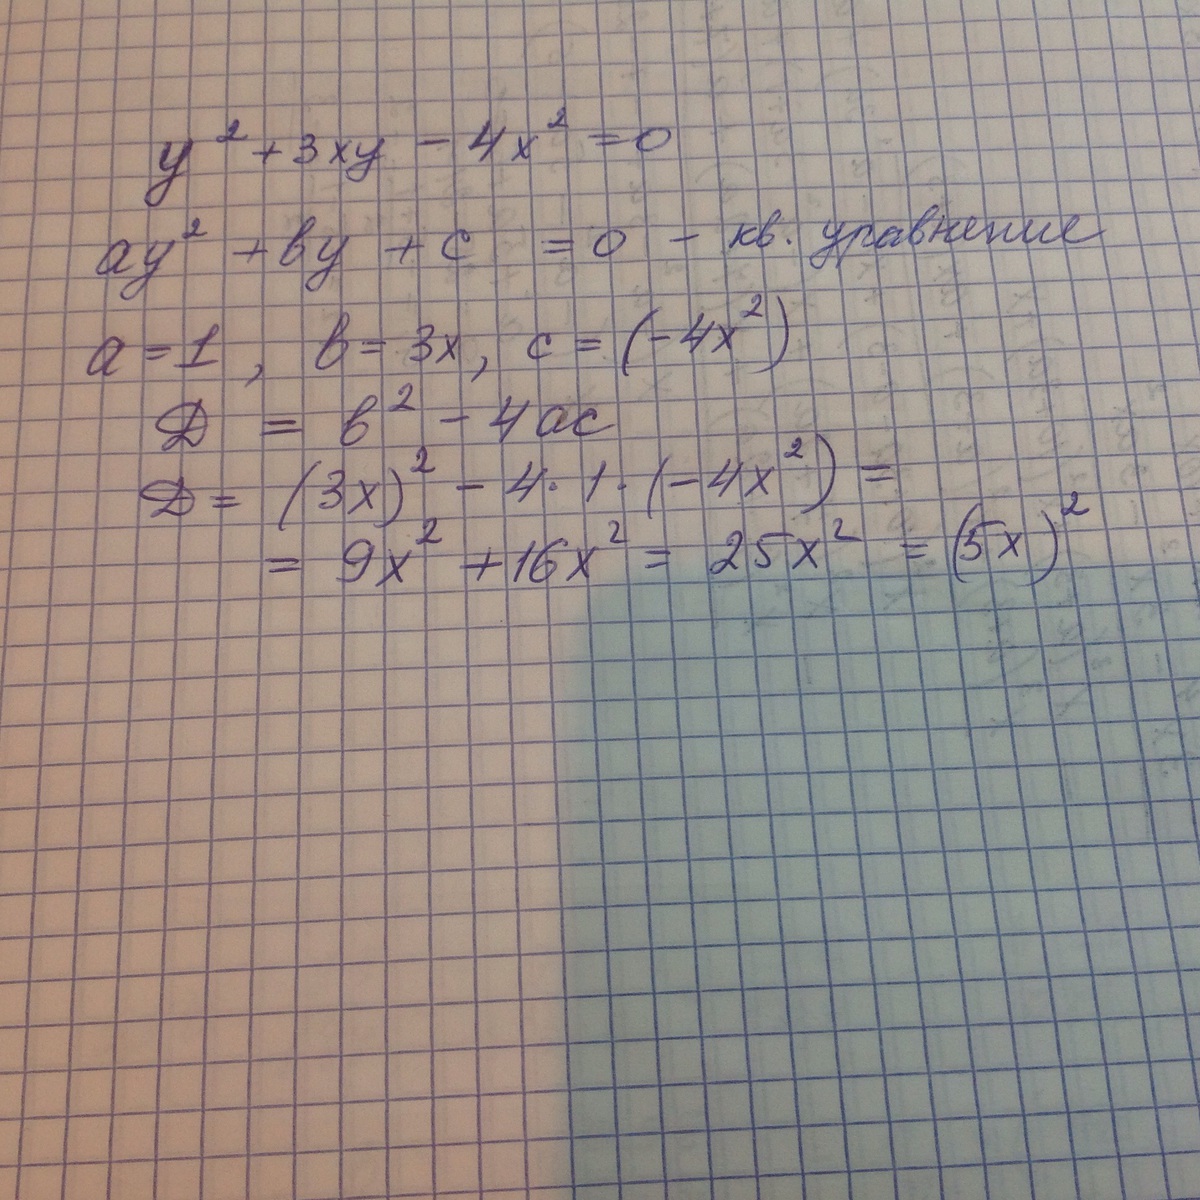 y² + 3xy - 4x² = 0
ay² + вy + c = 0 - кв. уравнение
a = 1, в = 3x, c = (-4x²)
Д = в² - 4ac
Д = (3x)² - 4·1·(-4x²) =
= 9x² + 16x² = 25x² = (5x)²